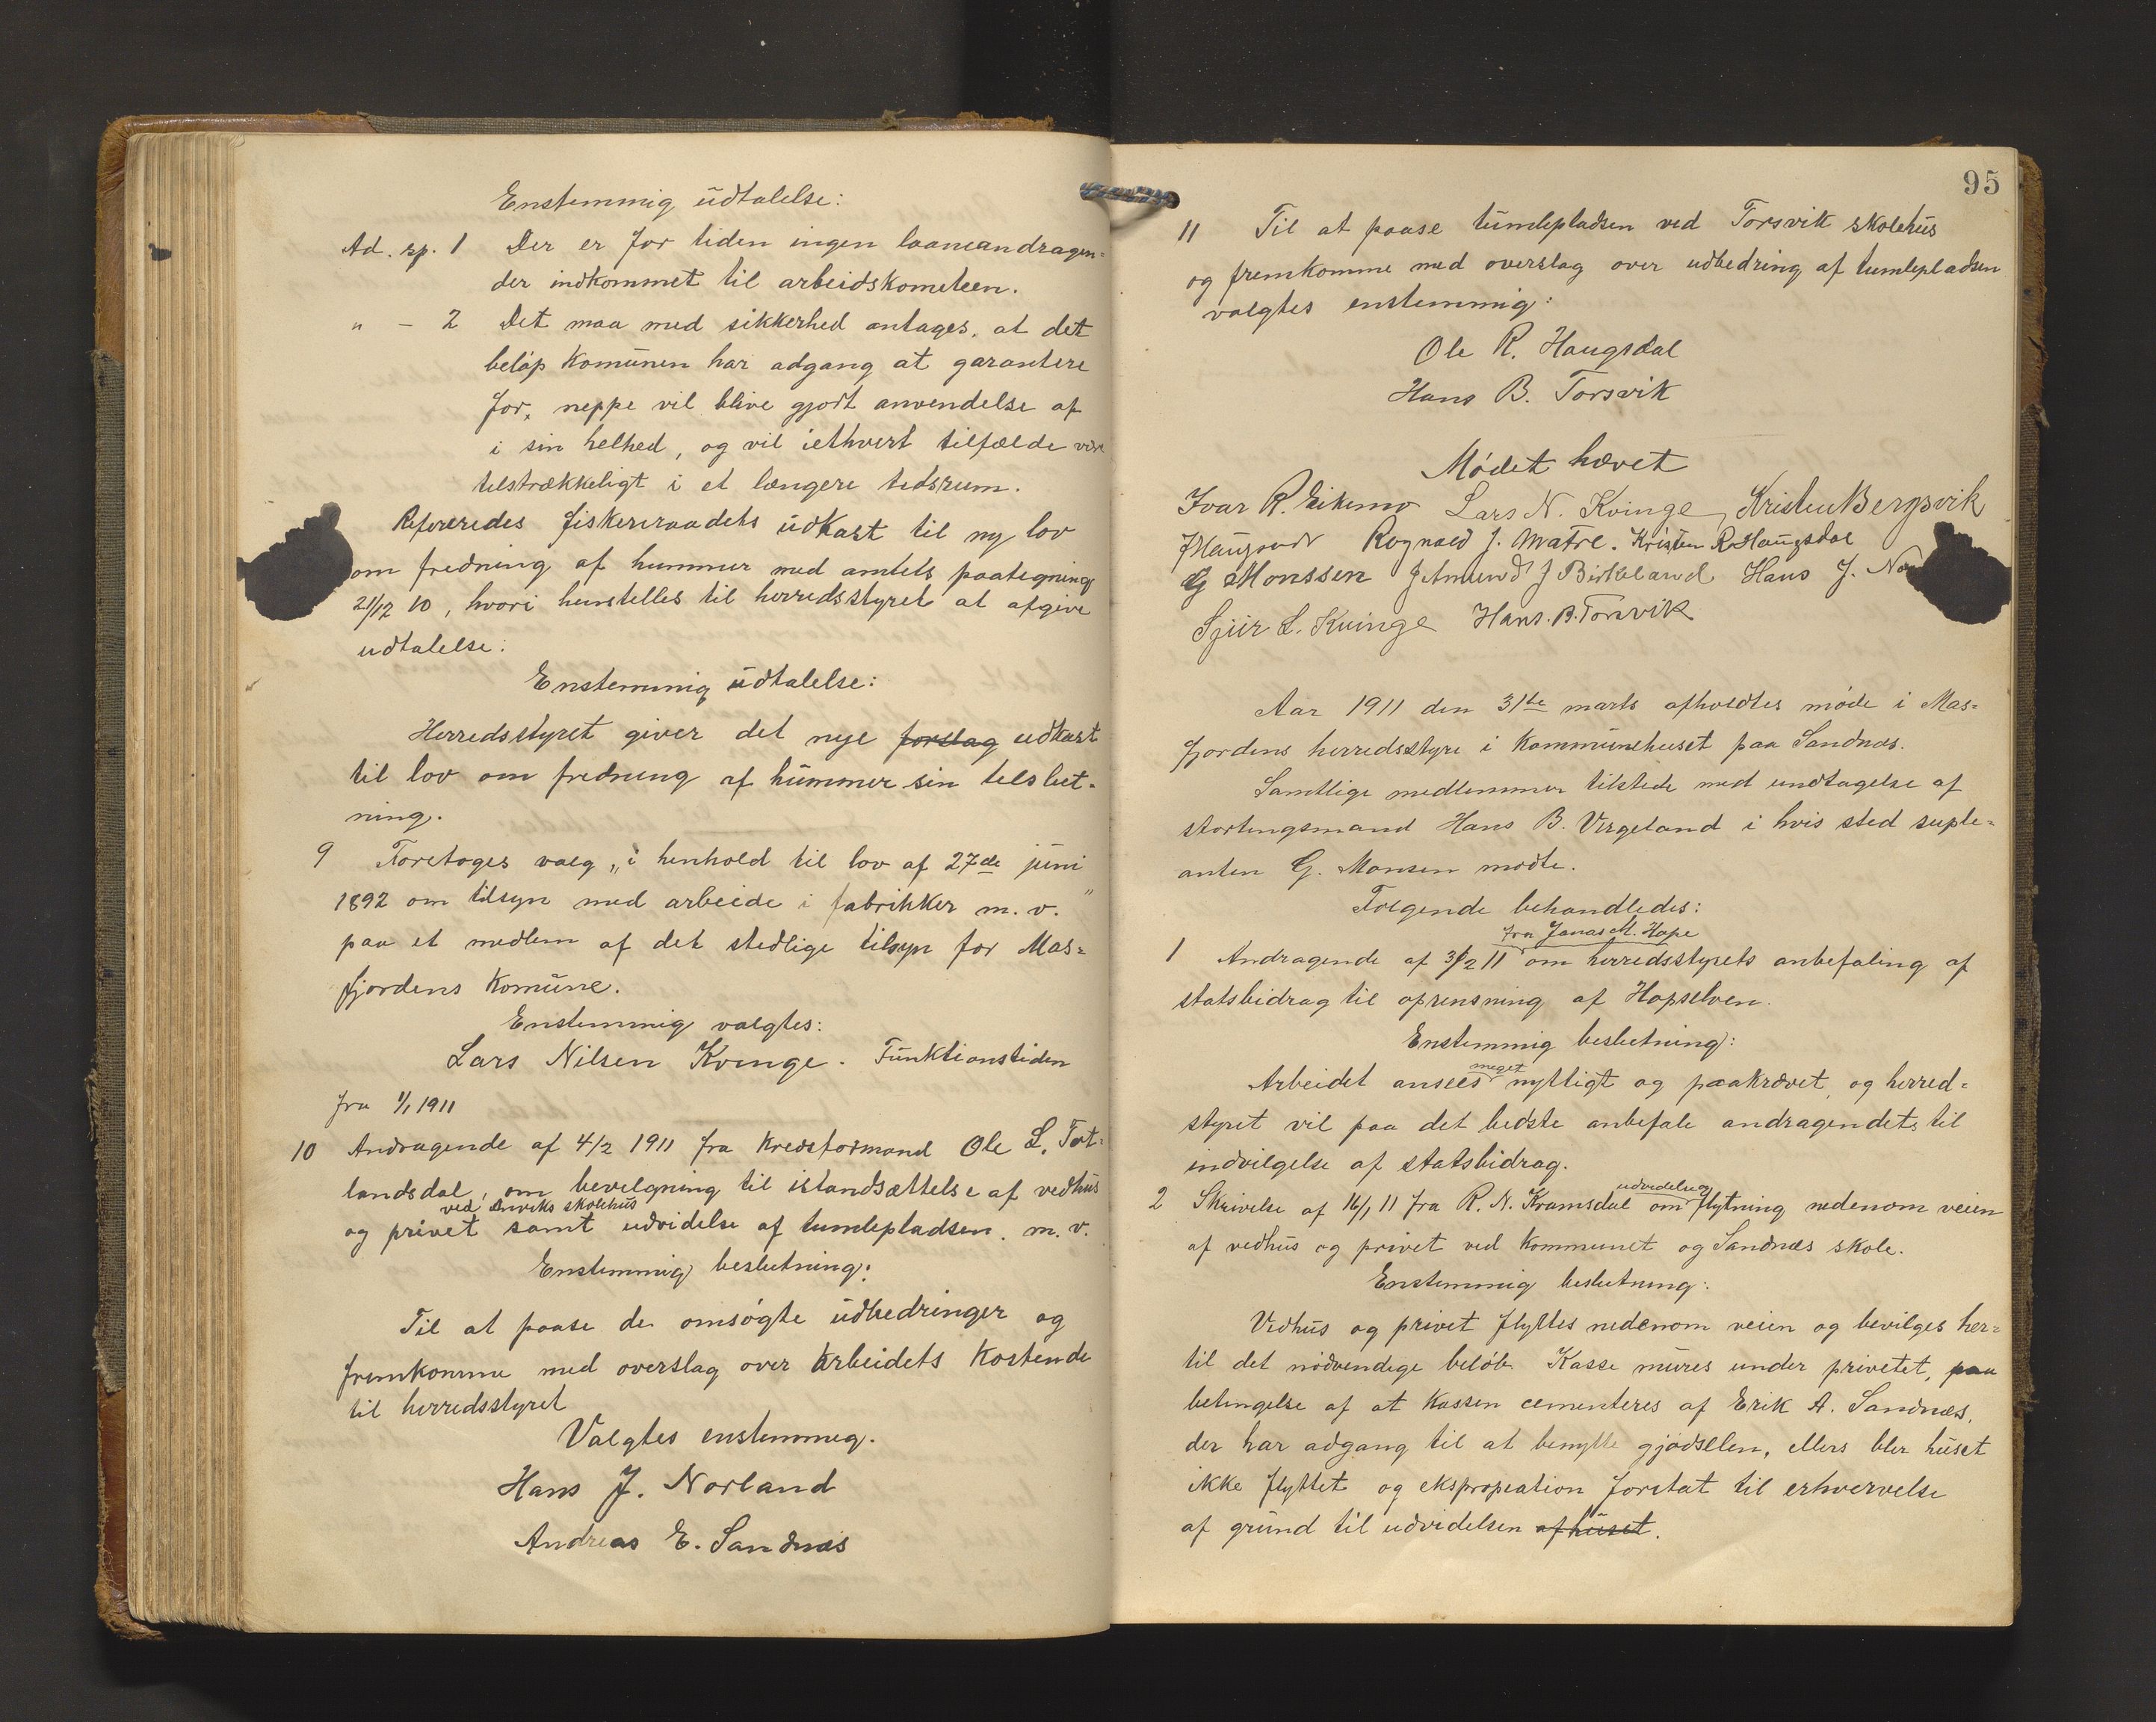 Enstemmig udtalelse:
Ad. sp. 1 Der er for tiden ingen laaneandragen-
der indkommet til arbeidskometeen.
" - 2 Det maa med sikkerhed antages, at det
beløp komunen har adgang at garantere
for, neppe vil blive gjort anvendelse af
i sin helhed, og vil iethvert tilfælde være
telstrækkeligt i et længere tedsrum.
Refereredes fiskeriraadets udkast til ny lov
om fredning af hummer med amtets paategning
21/12 10, hvori henstelles til herredsstyret at afgive
udtalelse:
Enstemmig udtalelse:
Herredsstyret giver det nye forslag udkast
til lov om fredning af hummer sin telslut-
ning.
9 Foretoges valg „i henhold til lov af 27de juni
1892 om tilsyn med arbeide i fabrikker m. v."
paa et medlem af det stedlige tilsyn for Mas-
fjordens komune.
Enstemmig valgtes:
Lars Nilsen Kvinge. Funktionstiden
fra 1/1 1911
10 Andragende af 4/2 1911 fra kredsformand Ole L. Tot-
landsdal, om bevilgning til istandsættelse af vedhus
ved Anviks skolehus
og privet samt udvidelse af tumlepladsen. m. v.
Enstemmig beslutning:
Til at paase de omsøgte udbedringer og
fremkomme med overslag over arbeidets kostende
til herredsstyret
Valgtes enstemmeg.
Hans J. Norland
Andreas E. Sandnæs
95
11 Til at paase tumlepladsen ved Torsvik skolehus
og fremkomme med overslag over udbedring af tumlepladsen
valgtes enstemmig:
Ole R. Haugsdal
Hans B. Torsvik
Mødet hævet
Ivar R. Eikemo Lars N. Kvinge, Kristen Bergsvik
Ragnald J. Matre. Kristen R. Haugsdal
G Monssen J Amund J Birkeland Hans J.
Sjur L. Kvinge Hans. B. Torsvik
Aar 1911 den 31te marts afholdtes møde i Mas-
fjordens herredsstyre i kommunehuset paa Sandnæs.
Samtlige medlemmer tilstede med undtagelse af
stortingsmand Hans B. Virgeland i hvis sted suple-
anten G. Monsen mødte.
Følgende behandledes:
fra Jonas M. Hope
1 Andragende af 3/2 11 om herredsstyrets anbefaling af
statsbidrag til oprensning af Hopselven.
Enstemmig beslutning:
meget
Arbeidet ansees nyttigt og paakrævet, og herred-
styret vil paa det bedste anbefale andragendets til
indvilgelse af statsbidrag.
udvidelse og
2 Skrivelse af 16/1 11 fra R. N. Kramsdal om flytning nedenom veien
af vedhus og privet ved kommunet og Sandnæs skole.
Enstemmig beslutning:
Vedhus og privet flyttes nedenom veien og bevilges her-
til det nødvendige beløb. Kasse mures under privetet, paa
betingelse af at kassen cementeres af Erik A. Sandnæs,
der har adgang til at benytte gjødselen, ellers blir huset
ikke flyttet og ekspropeation foretat til erhvervelse
af grund til udvidelsen af huset.